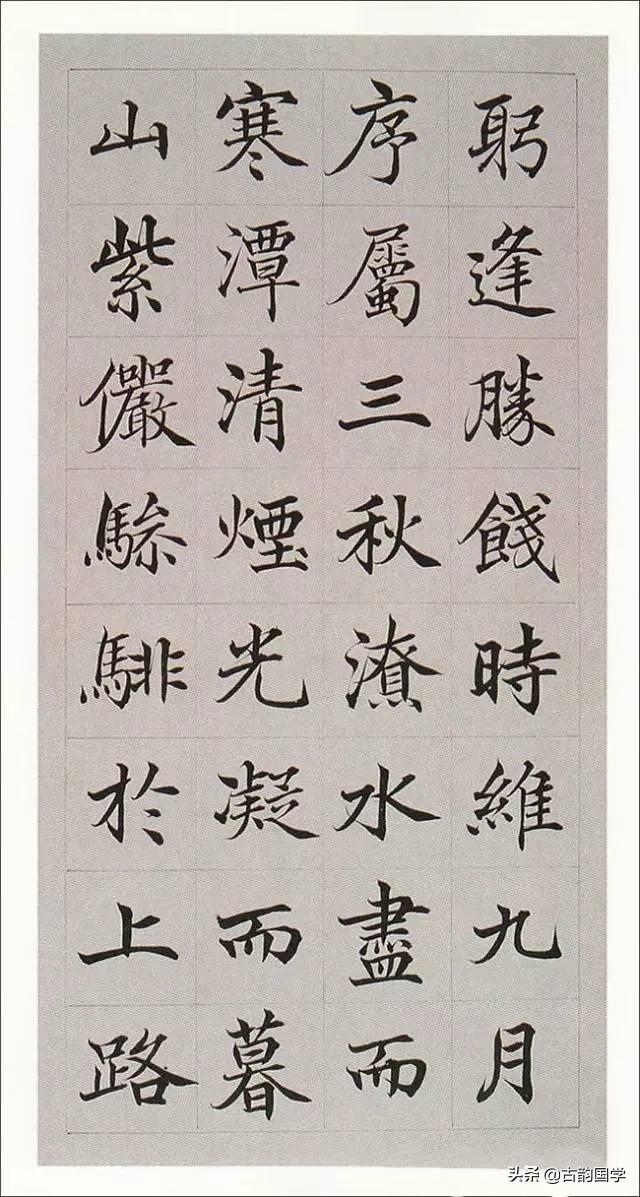 躬逢勝餞時維九月
序屬三秋潦水盡而
寒潭清煙光凝而暮
山紫儼驂騑於上路
头条 @古韵国学